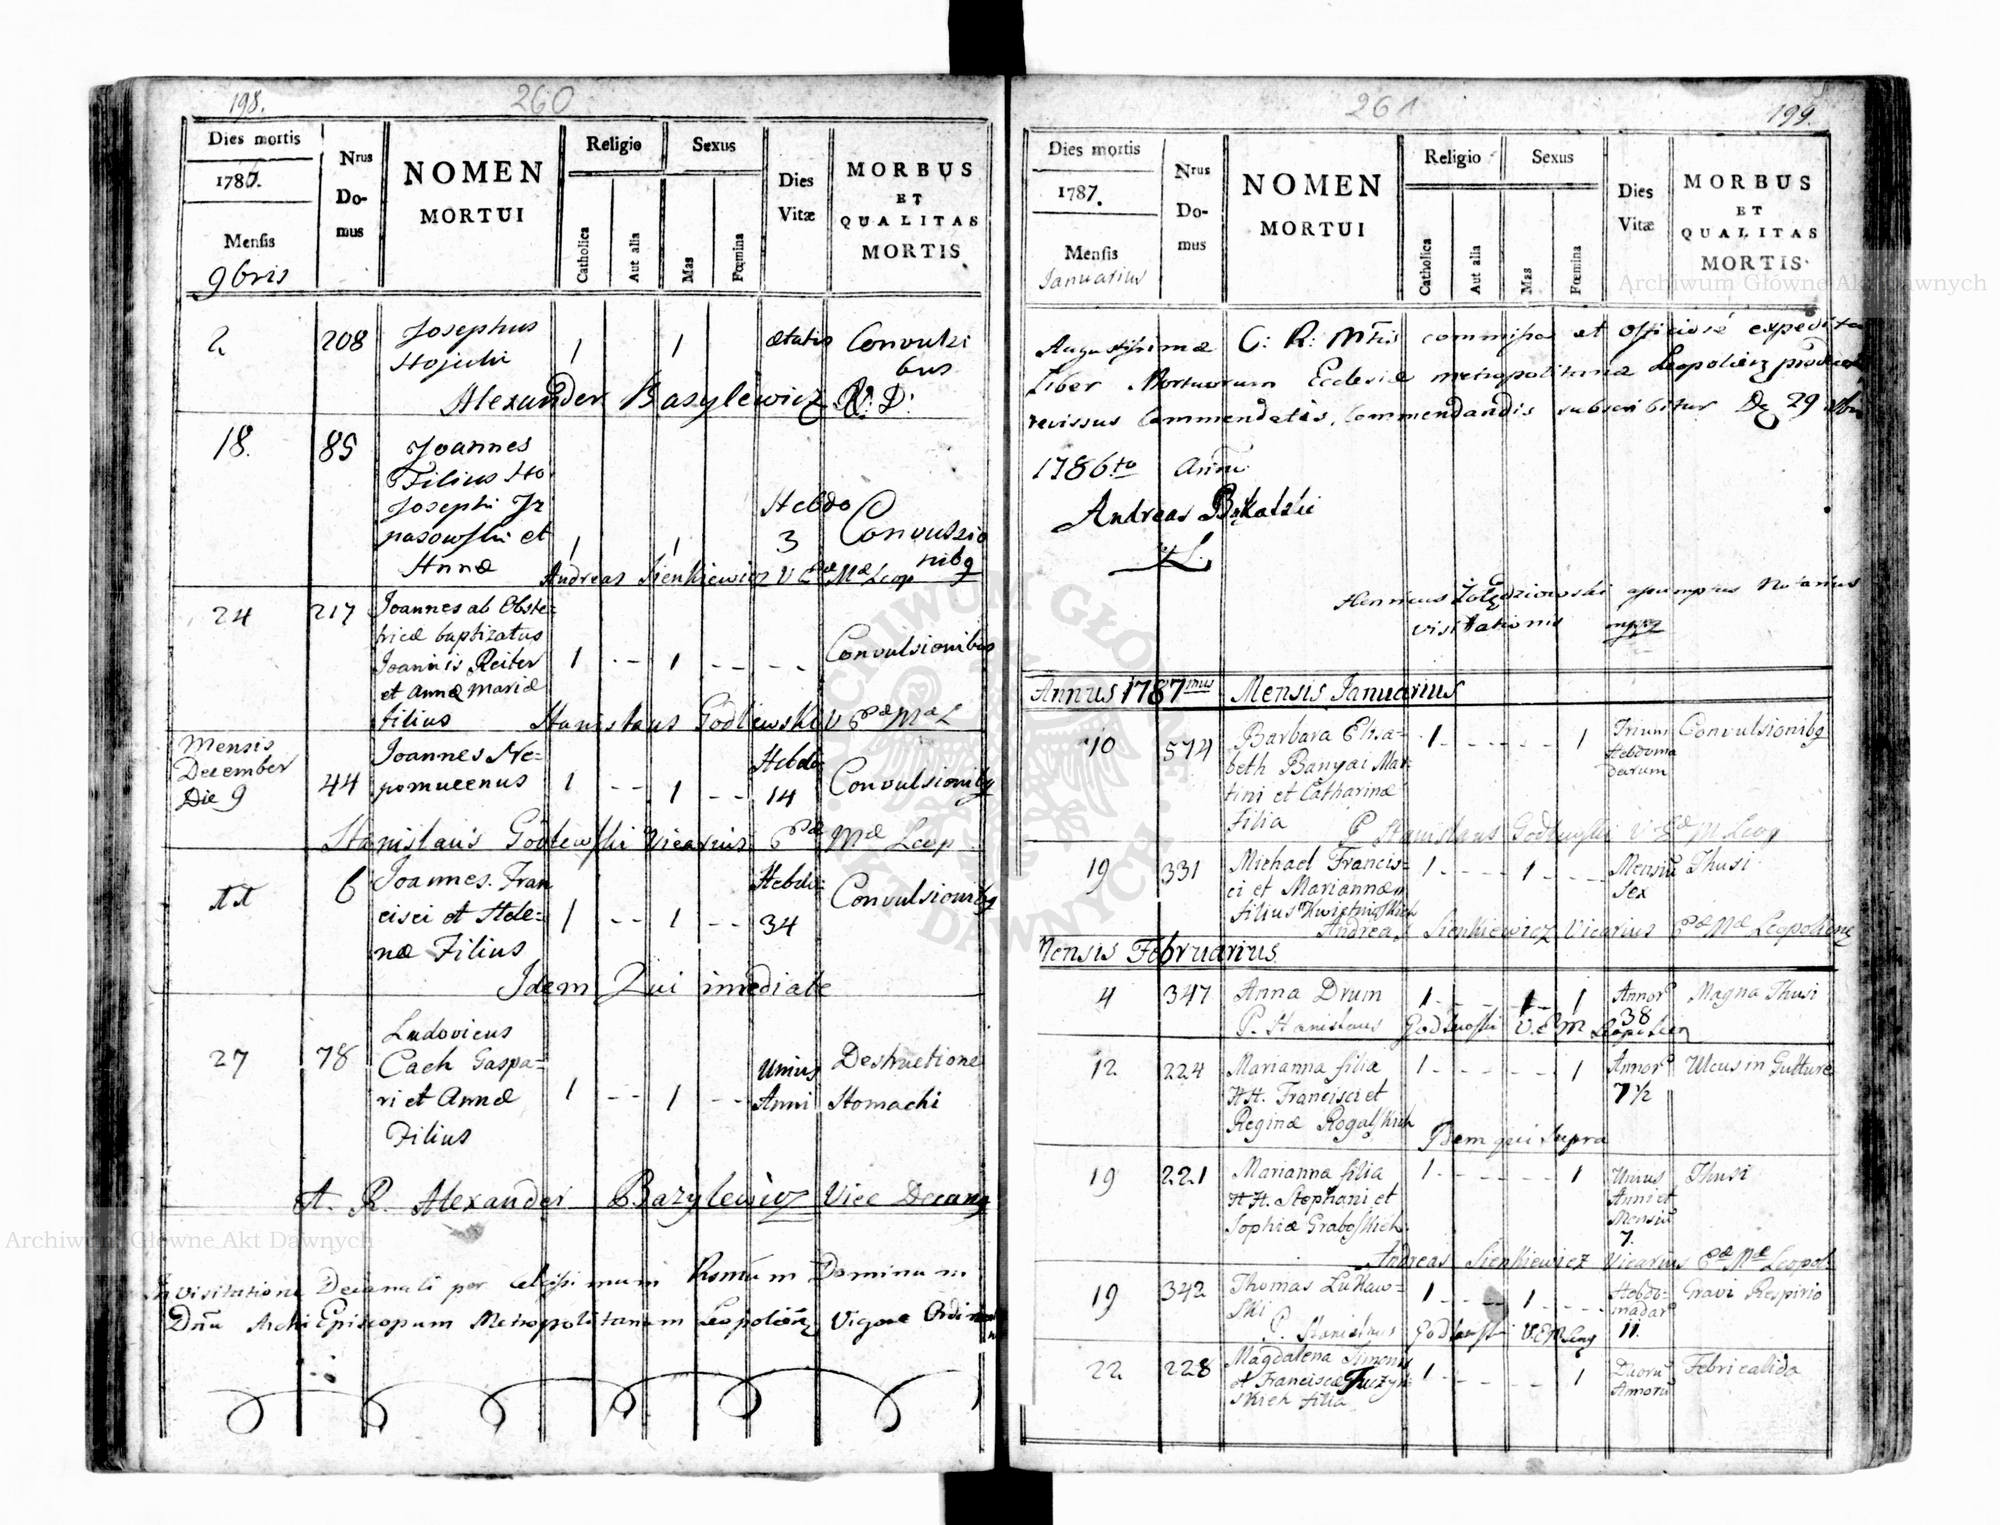 198.
260
Dies mortis
1786.
Mensis
9bris
Nrus
Do-
mus
NOMEN
MORTUI
Religio
Catholica
Aut alia
Sexus
Mas
Fœmina
Dies
Vitæ
MORBUS
ET
QUALITAS
MORTIS
2
208
Josephus
1
1
ætatis
Convulsi
bus
Alexander Basylewicz V: D:
18.
85
Joannes
Filius
Josephi
et
Annæ
1
1
Hebdo
3
Convulsio
nibq
Andreas Sienkiewicz V Ecæ Mæ Leop
24
217
Joannes ab Obste-
trice baptizatus
Joannis Reiter
et Annæ Mariæ
filius
1 - - 1 - - - - -
Convulsionibus
Stanislaus Godlewski V Ecæ Mæ L
Mensis
December
Die 9
44
Joannes Ne-
pomucenus
1 - - 1 - -
Hebdo
14
Convulsionibq
Stanislaus Godlewski Vicarius Ecæ Mæ Leop
11
6
Joannes. Fran
cisci et Hele-
næ Filius
1 - - 1 - -
Hebdo-
34
Convulsionibq
Idem Qui imediate
27
78
Ludovicus
Cach Gaspa-
ri et Annæ
Filius
1 - - 1 - -
Unius
Anni
Destructione
Stomachi
A. R. Alexander Bazylewicz Vice Decang
In visitatione Decanali per Celsissimum Rsmum Dominum
Dnū Archi Episcopum Metropolitanum Leopolienz Vigore
261
199.
Dies mortis
1787.
Mensis
Januarius
Nrus
Do-
mus
NOMEN
MORTUI
Religio
Catholica
Aut alia
Sexus
Mas
Fœmina
Dies
Vitæ
MORBUS
ET
QUALITAS
MORTIS
Augustissimæ C: R: Mtis commissa et officiose expedita
Liber Mortuorum Ecclesiæ metropolitanæ Leopolienz
revissus Commendatis, Commendandis subscribitur De 29
1786to Anni
Andreas
Henricus assumptus Notarius
visitationis
Annus 1787mus Mensis Januarius
10
574
Barbara Elisa-
beth Banyai Mar-
tini et Catharinæ
filia
1 - - - - - 1
Trium
Hebdoma
darum
Convulsionibq
P Stanislaus Godlewski V Ecæ M Leop
19
331
Michael Francis-
ci et Mariannæ
filius Kwietniofkich
1 - - - - 1 - - -
Mensiū
Sex
Thusi
Andreas Sienkiewicz Vicarius Ecæ Mæ Leopoliens
Mensis Februarius
4
347
Anna Drum
1 - - - 1 - 1
Annor
38
Magna Thusi
P. Stanislaus Godlewski V. E M Leopolien
12
224
Marianna filia
HH. Francisci et
Reginæ Rogalskich
1 - - - - - 1
Annor
7 1/2
Ulcus in Gutture
Idem qui Supra
19
221
Marianna filia
HH. Stephani et
Sophiæ Graboskich
1 - - - - - 1
Unius
Anni et
Mensiū
7.
Thusi
Andreas Sienkiewicz Vicarius Ecæ Mæ Leopol:
19
342
Thomas Lukaw-
ski
1 - - - - 1 - - -
Hebdo-
madar
11.
Gravi Respirio
P. Stanislaus Godlewski V.E.M Leop
22
228
Magdalena Simonis
et Franciscæ
skich filia
1 - - - - - 1
Duorū
Annorū
Febri calida
Archiwum Główne Akt Dawnych
Archiwum Główne Akt Dawnych
ARCHIWUM GŁÓWNE AKT DAWNYCH